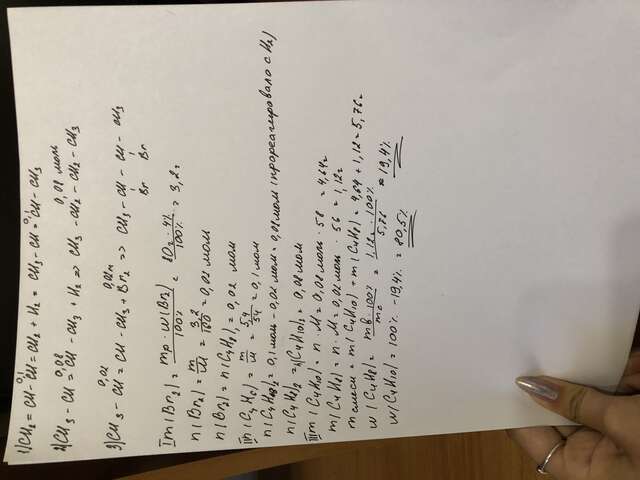 0,1 0,1
1) CH₂ = CH - CH = CH₂ + H₂ = CH₃ - CH = CH - CH₃
0,08 0,08 моль
2) CH₃ - CH = CH - CH₃ + H₂ => CH₃ - CH₂ - CH₂ - CH₃
0,02 0,02м
3) CH₃ - CH = CH - CH₃ + Br₂ => CH₃ - CH - CH - CH₃
Br Br
I m(Br₂) = mр · w(Br₂) / 100% = 80г · 4% / 100% = 3,2г
n(Br₂) = m/M = 3,2/160 = 0,02 моль
n(Br₂) = n(C₄H₈) = 0,02 моль
II n(C₄H₆) = m/M = 5,4/54 = 0,1 моль
n(C₄H₈) = 0,1 моль - 0,02 моль = 0,08 моль (прореагировало с H₂)
n(C₄H₈) = n(C₄H₁₀) = 0,08 моль
III m(C₄H₁₀) = n · M = 0,08 моль · 58 = 4,64г
m(C₄H₈) = n · M = 0,02 моль · 56 = 1,12г
m смеси = m(C₄H₁₀) + m(C₄H₈) = 4,64 + 1,12 = 5,76г
w(C₄H₈) = mв · 100% / mс = 1,12г · 100% / 5,76 = 19,4%
w(C₄H₁₀) = 100% - 19,4% = 80,5%